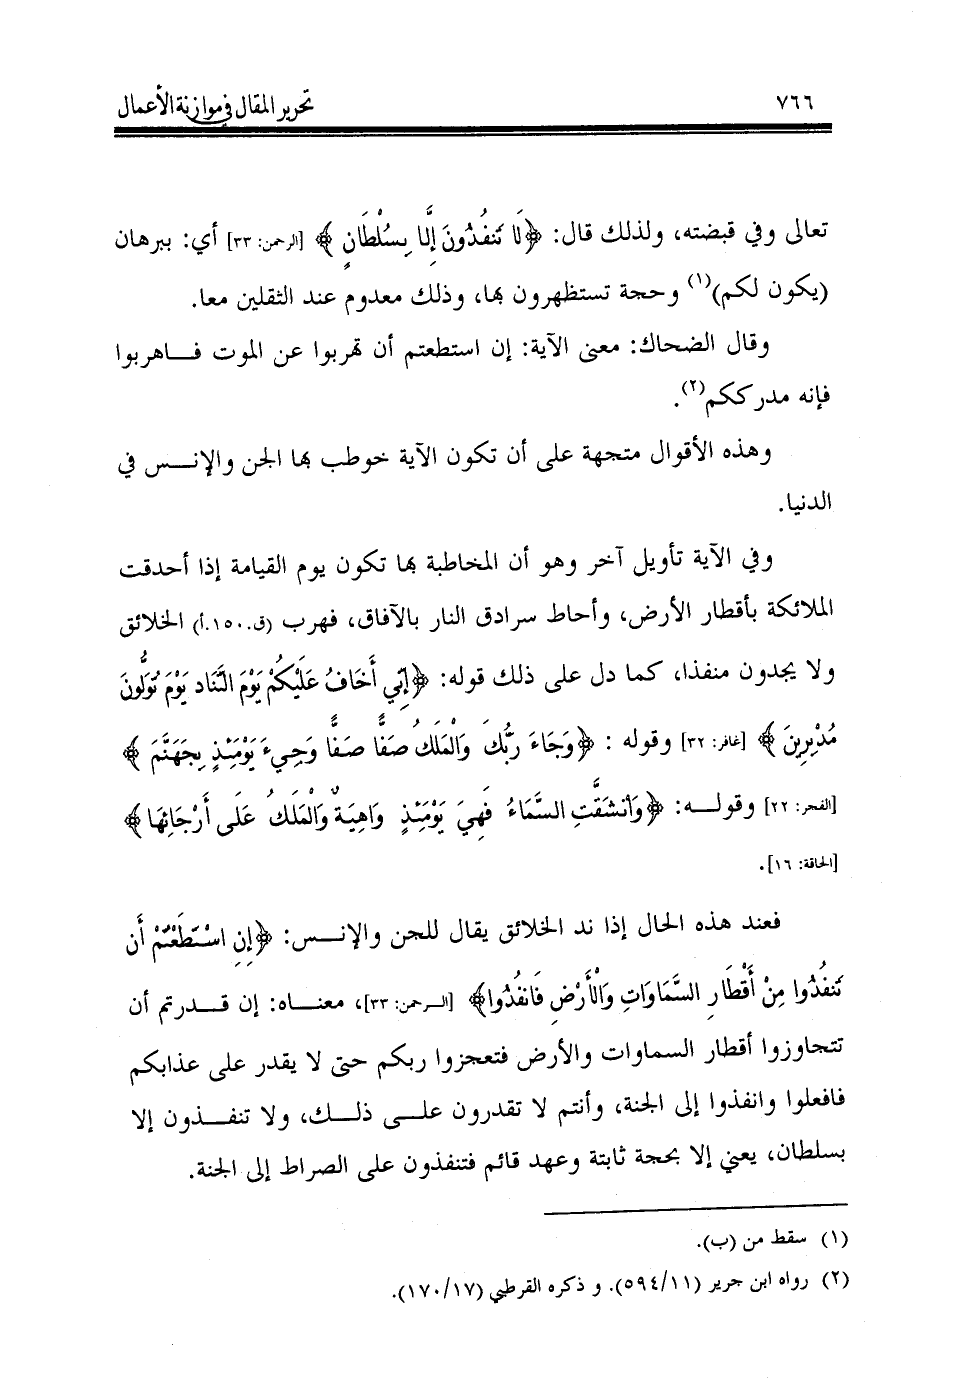 ٧٦٦
تحرير المقال في موازنة الأعمال
تعالى وفي قبضته، ولذلك قال: ﴿لَا تَنفُذُونَ إِلَّا بِسُلْطَانٍ﴾ [الرحمن: ٣٣] أي: ببرهان
(يكون لكم)(١) وحجة تستظهرون بها، وذلك معدوم عند الثقلين معا.
وقال الضحاك: معنى الآية: إن استطعتم أن تهربوا عن الموت فاهربوا
فإنه مدرككم(٢).
وهذه الأقوال متجهة على أن تكون الآية خوطب بها الجن والإنس في
الدنيا.
وفي الآية تأويل آخر وهو أن المخاطبة بها تكون يوم القيامة إذا أحدقت
الملائكة بأقطار الأرض، وأحاط سرادق النار بالآفاق، فهرب (ق.١٥٠.أ) الخلائق
ولا يجدون منفذا، كما دل على ذلك قوله: ﴿إِنِّي أَخَافُ عَلَيْكُمْ يَوْمَ التَّنَاد يَوْمَ تُوَلُّونَ
مُدْبِرِينَ﴾ [غافر: ٣٢] وقوله : ﴿وَجَاءَ رَبُّكَ وَالْمَلَكُ صَفًّا صَفًّا وَجِيءَ يَوْمَئِذٍ بِجَهَنَّمَ﴾
[الفجر: ٢٢] وقوله: ﴿وَانشَقَّتِ السَّمَاءُ فَهِيَ يَوْمَئِذٍ وَاهِيَةٌ وَالْمَلَكُ عَلَى أَرْجَائِهَا﴾
[الحاقة: ١٦].
فعند هذه الحال إذا ند الخلائق يقال للجن والإنس: ﴿إِنِ اسْتَطَعْتُمْ أَن
تَنفُذُوا مِنْ أَقْطَارِ السَّمَاوَاتِ وَالْأَرْضِ فَانفُذُوا﴾ [الرحمن: ٣٣]، معناه: إن قدرتم أن
تتجاوزوا أقطار السماوات والأرض فتعجزوا ربكم حتى لا يقدر على عذابكم
فافعلوا وانفذوا إلى الجنة، وأنتم لا تقدرون على ذلك، ولا تنفذون إلا
بسلطان، يعني إلا بحجة ثابتة وعهد قائم فتنفذون على الصراط إلى الجنة.
(١) سقط من (ب).
(٢) رواه ابن جرير (٥٩٤/١١). و ذكره القرطبي (١٧٠/١٧).